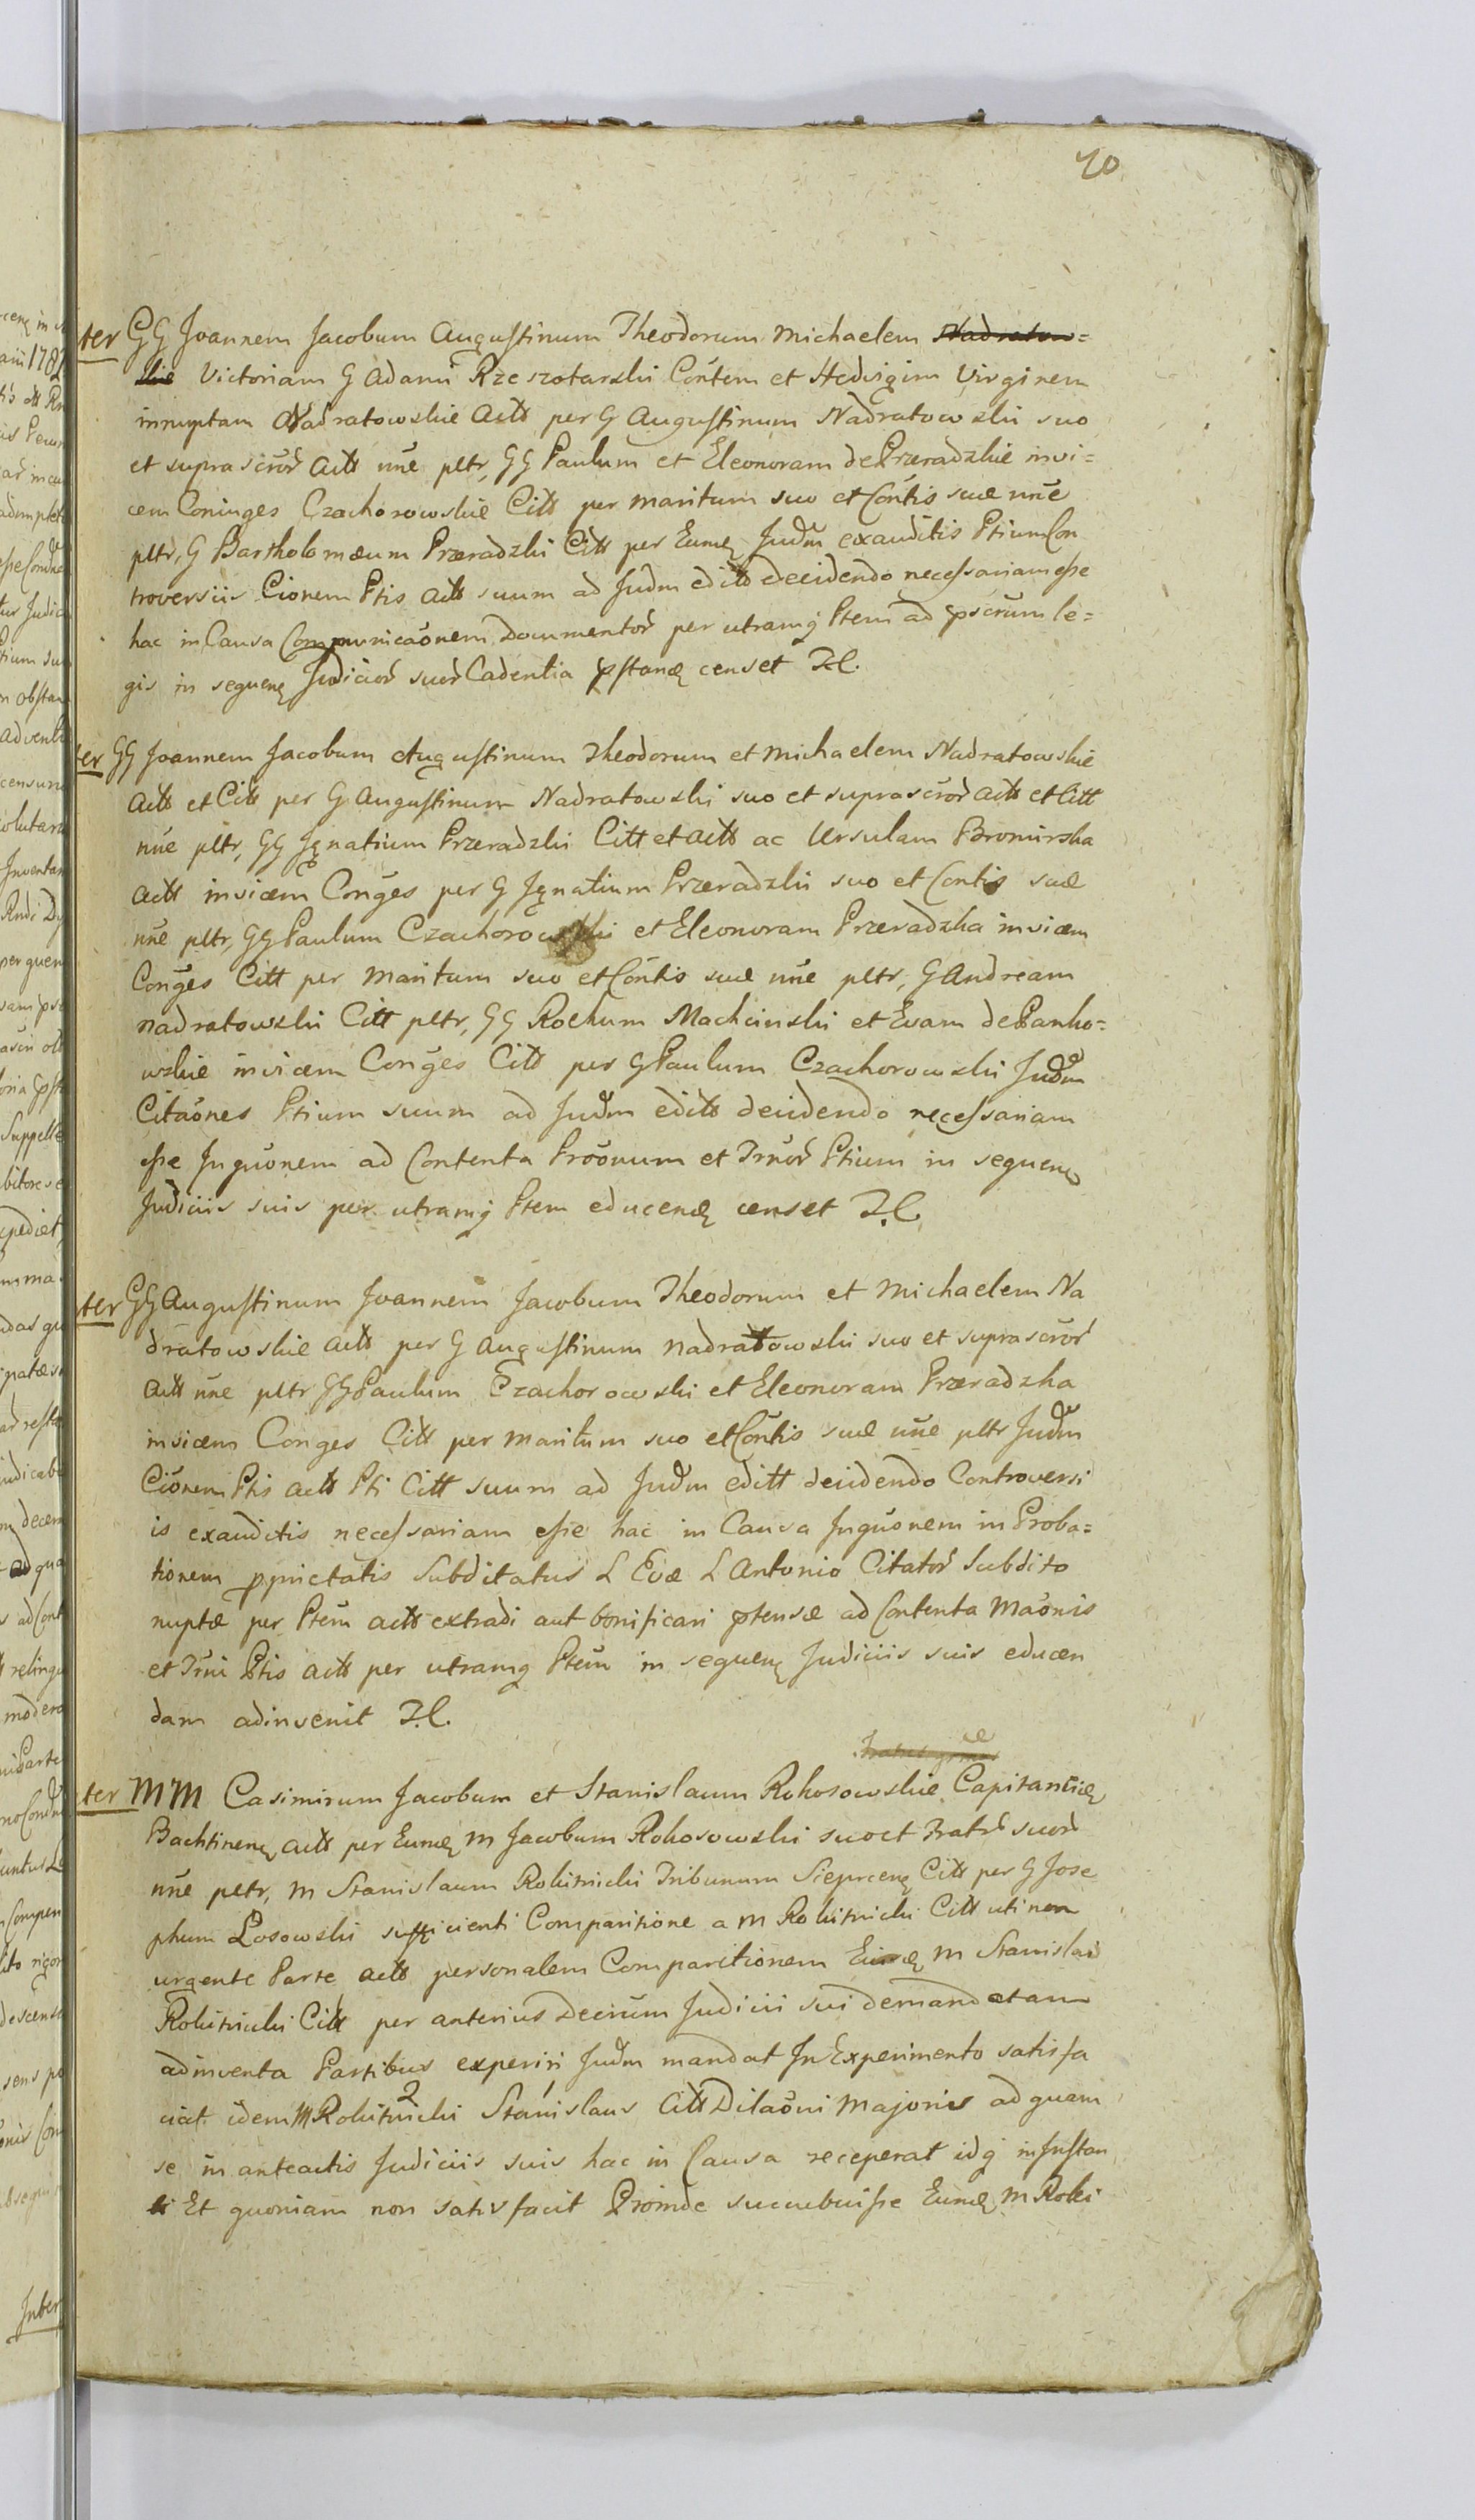 40
ter GG Joannem Jacobum Augustinum Theodorum Michaelem Nadratow=
skie Victoriam G Adami Rzeszotarski Contem et Hedvigim Virginem
innuptam Nadratowskie Actt per G Augustinum Nadratowski suo
et suprascror Actt nne pltr, GG Paulum et Eleonoram de Przeradzkie invi=
cem Coniuges Czachorowskie Citt per maritum suo et Contis suae nne
pltr, G Bartholomæum Przeradzki Citt per Eumd Judm exauditis Ptium Con
troversiis Cionem Ptis Actt suum ad Judm editt decidendo necessariam esse
hac in Causa Communicaonem Documentor per utramq Ptem ad pscrum le=
gis in sequen Judicior suor Cadentia pstand censet J.C.
ter GG Joannem Jacobum Augustinum Theodorum et Michaelem Nadratowskie
Actt et Citt per G Augustinum Nadratowski suo et suprascror Actt et Citt
nne pltr, GG Ignatium Przeradzki Citt et Actt ac Ursulam Bromirska
Actt invicem Conges per G Ignatium Przeradzki suo et Contis suae
nne pltr, GG Paulum Czachorowski et Eleonoram Przeradzka invicem
Conges Citt per maritum suo et Contis suae nne pltr, G Andream
Nadratowski Citt pltr, GG Rochum Machcinski et Evam de Panko=
wskie invicem Conges Citt per G Paulum Czachorowski Judm
Citaones Ptium suum ad Judm editt decidendo necessariam
esse Inquonem ad Contenta Proonum et Trnor Ptium in sequen
Judiciis suis per utramq Ptem educend censet J.C.
ter GG Augustinum Joannem Jacobum Theodorum et Michaelem Na
dratowskie Actt per G Augustinum Nadratowski suo et suprascror
Actt nne pltr GG Paulum Czachorowski et Eleonoram Przeradzka
invicem Conges Citt per maritum suo et Contis suae nne pltr Judm
Cionem Ptis Actt Pti Citt suum ad Judm editt decidendo Controversi
is exauditis necessariam esse hac in Causa Inquonem in Proba=
tionem pprietatis Subditatus L Evæ L Antonio Citator Subdito
nuptæ per Ptem Actt extradi aut bonificari ptensæ ad Contenta Maonis
et Trni Ptis Actt per utramq Ptem in sequen Judiciis suis educen
dam adinvenit J.C.
ter MM Casimirum Jacobum et Stanislaum Rokosowskie Capitancid
Bachtinen Actt per Eumd M Jacobum Rokosowski suo et Fratr suor
nne pltr, M Stanislaum Rokitnicki Tribunum Sieprcen Citt per G Jose
phum Losowski sufficienti Comparitione a M Rokitnicki Citt uti non
urgente Parte Actt personalem Comparitionem Eiusd M Stanislai
Rokitnicki Citt per anterius Decrum Judicii sui demandatam
adinventa Partibus experiri Judm mandat In Experimento satisfa
ciat idem M Rokitnicki Stanislaus Citt Dilaoni Majoris ad quam
se in anteactis Judiciis suis hac in Causa receperat idq in Instan
ti Et quoniam non satisfacit Proinde succubuisse Eumd M Roki